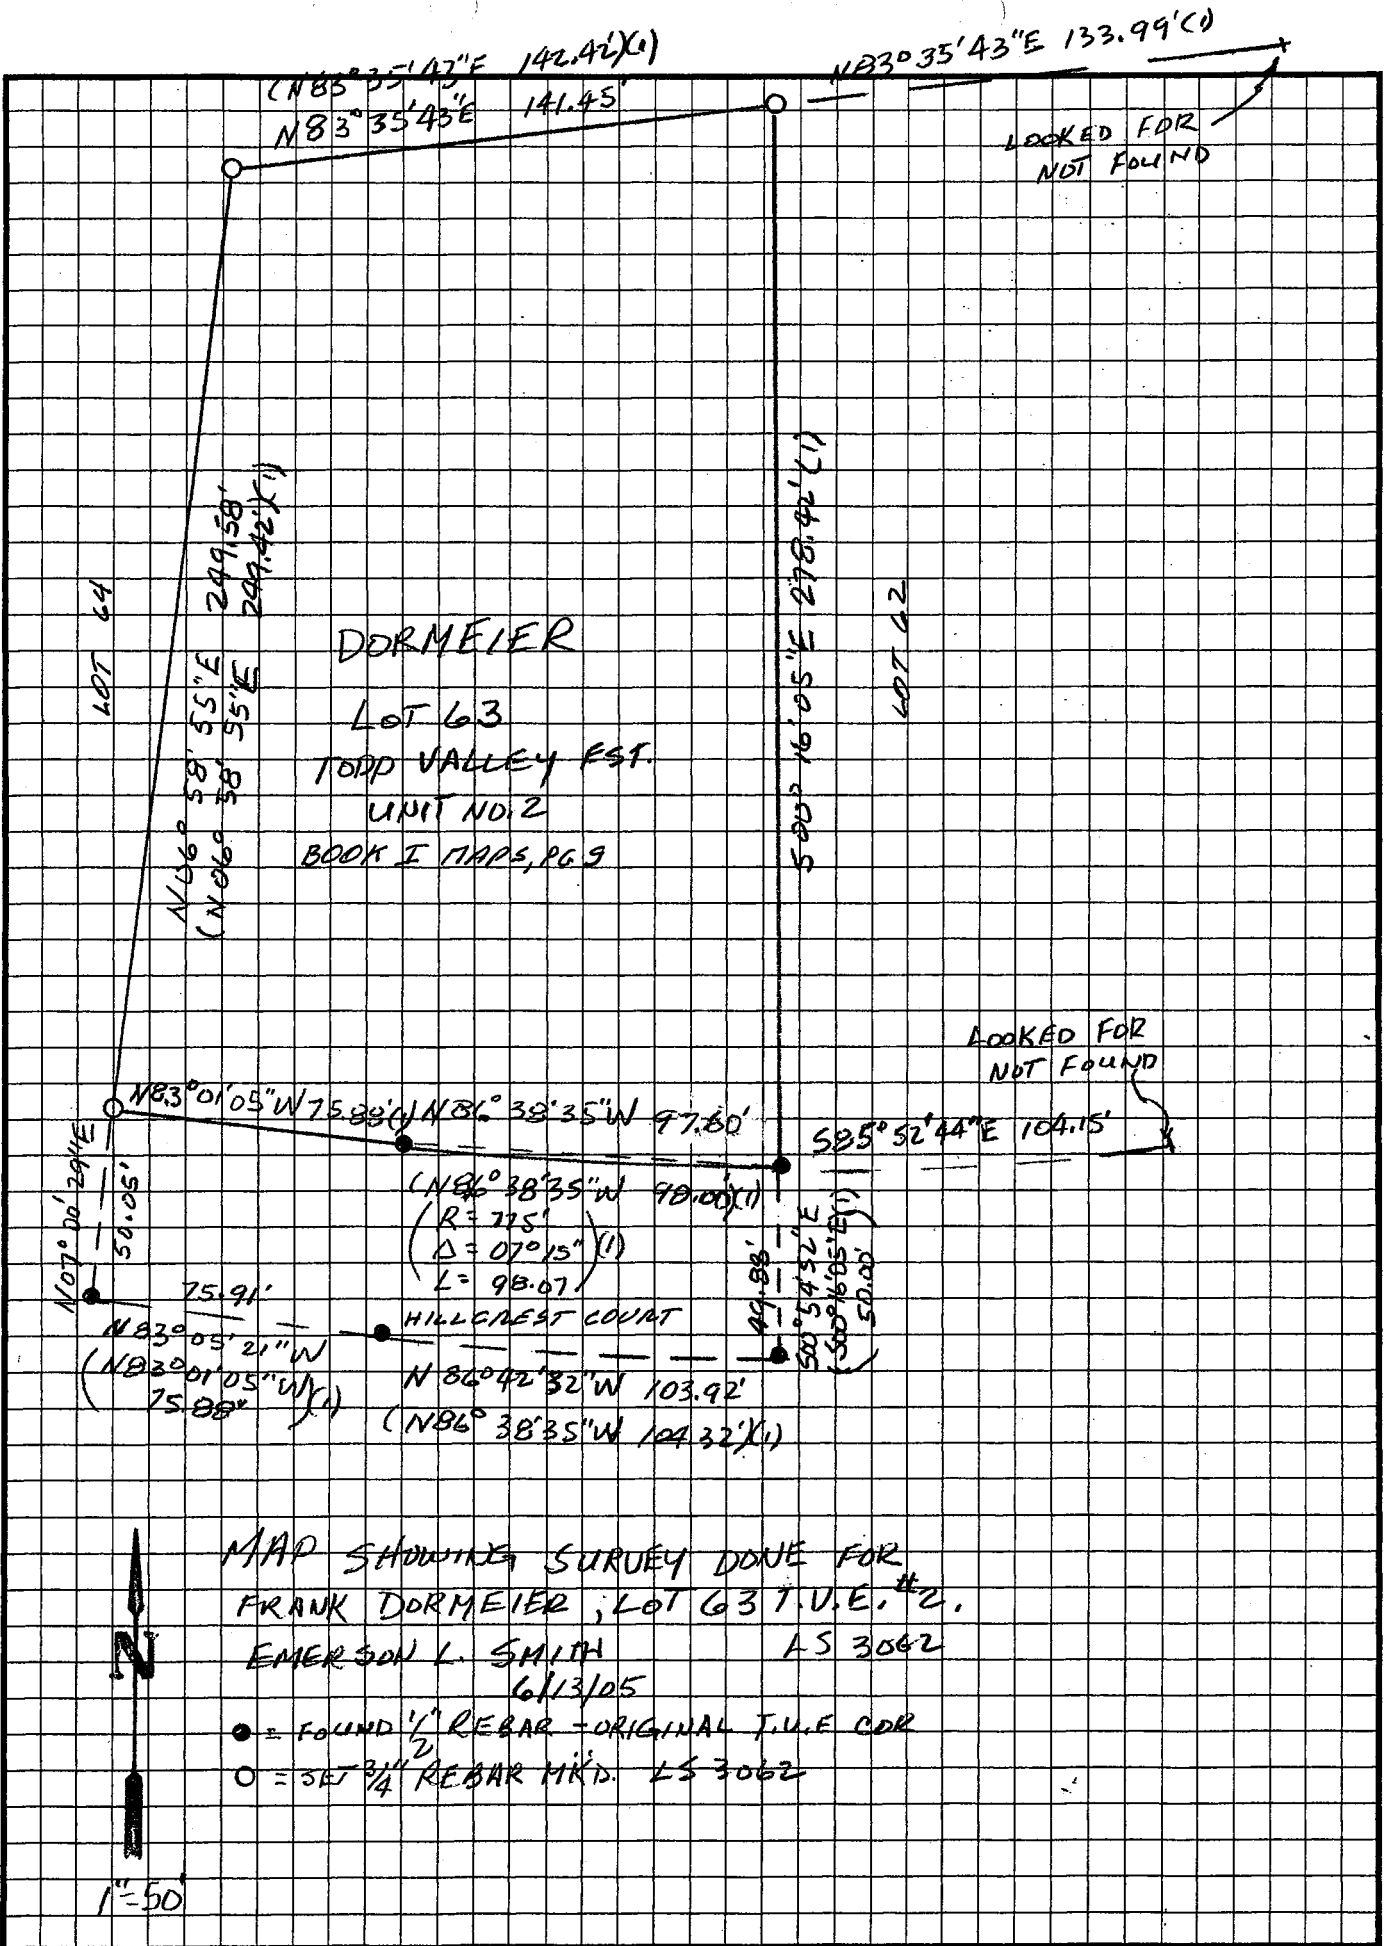 (N83°35'43"E 142.42')(1)
N83°35'43"E 141.45'
N83°35'43"E 133.99'(1)
LOOKED FOR
NOT FOUND
LOT 64
N06° 58' 55"E 249.58'
(N06° 58' 55"E 249.42')(1)
DORMEIER
LOT 63
TODD VALLEY EST.
UNIT NO.2
BOOK I MAPS, PG 9
S00° 16' 05"E 278.42'(1)
LOT 62
LOOKED FOR
NOT FOUND
N83°01'05"W 75.88'(1)
N86° 38'35"W 97.60'
S85°52'44"E 104.15'
(N86° 38'35"W 98.00')(1)
(R = 775'
Δ = 07°15"
L = 98.07)(1)
N07°00'29"E
50.05'
49.88'
S00°54'52"E
(S00°16'05"E)(1)
50.00'
75.91'
HILLCREST COURT
N83°05'21"W
(N83°01'05"W
75.88")(1)
N 86°42'32"W 103.92'
(N86° 38'35"W 104.32')(1)
MAP SHOWING SURVEY DONE FOR
FRANK DORMEIER, LOT 63 T.V.E. #2.
EMERSON L. SMITH LS 3062
6/13/05
● = FOUND 1/2" REBAR - ORIGINAL T.V.E COR
○ = SET 3/4" REBAR MKD. LS 3062
N
1"=50'